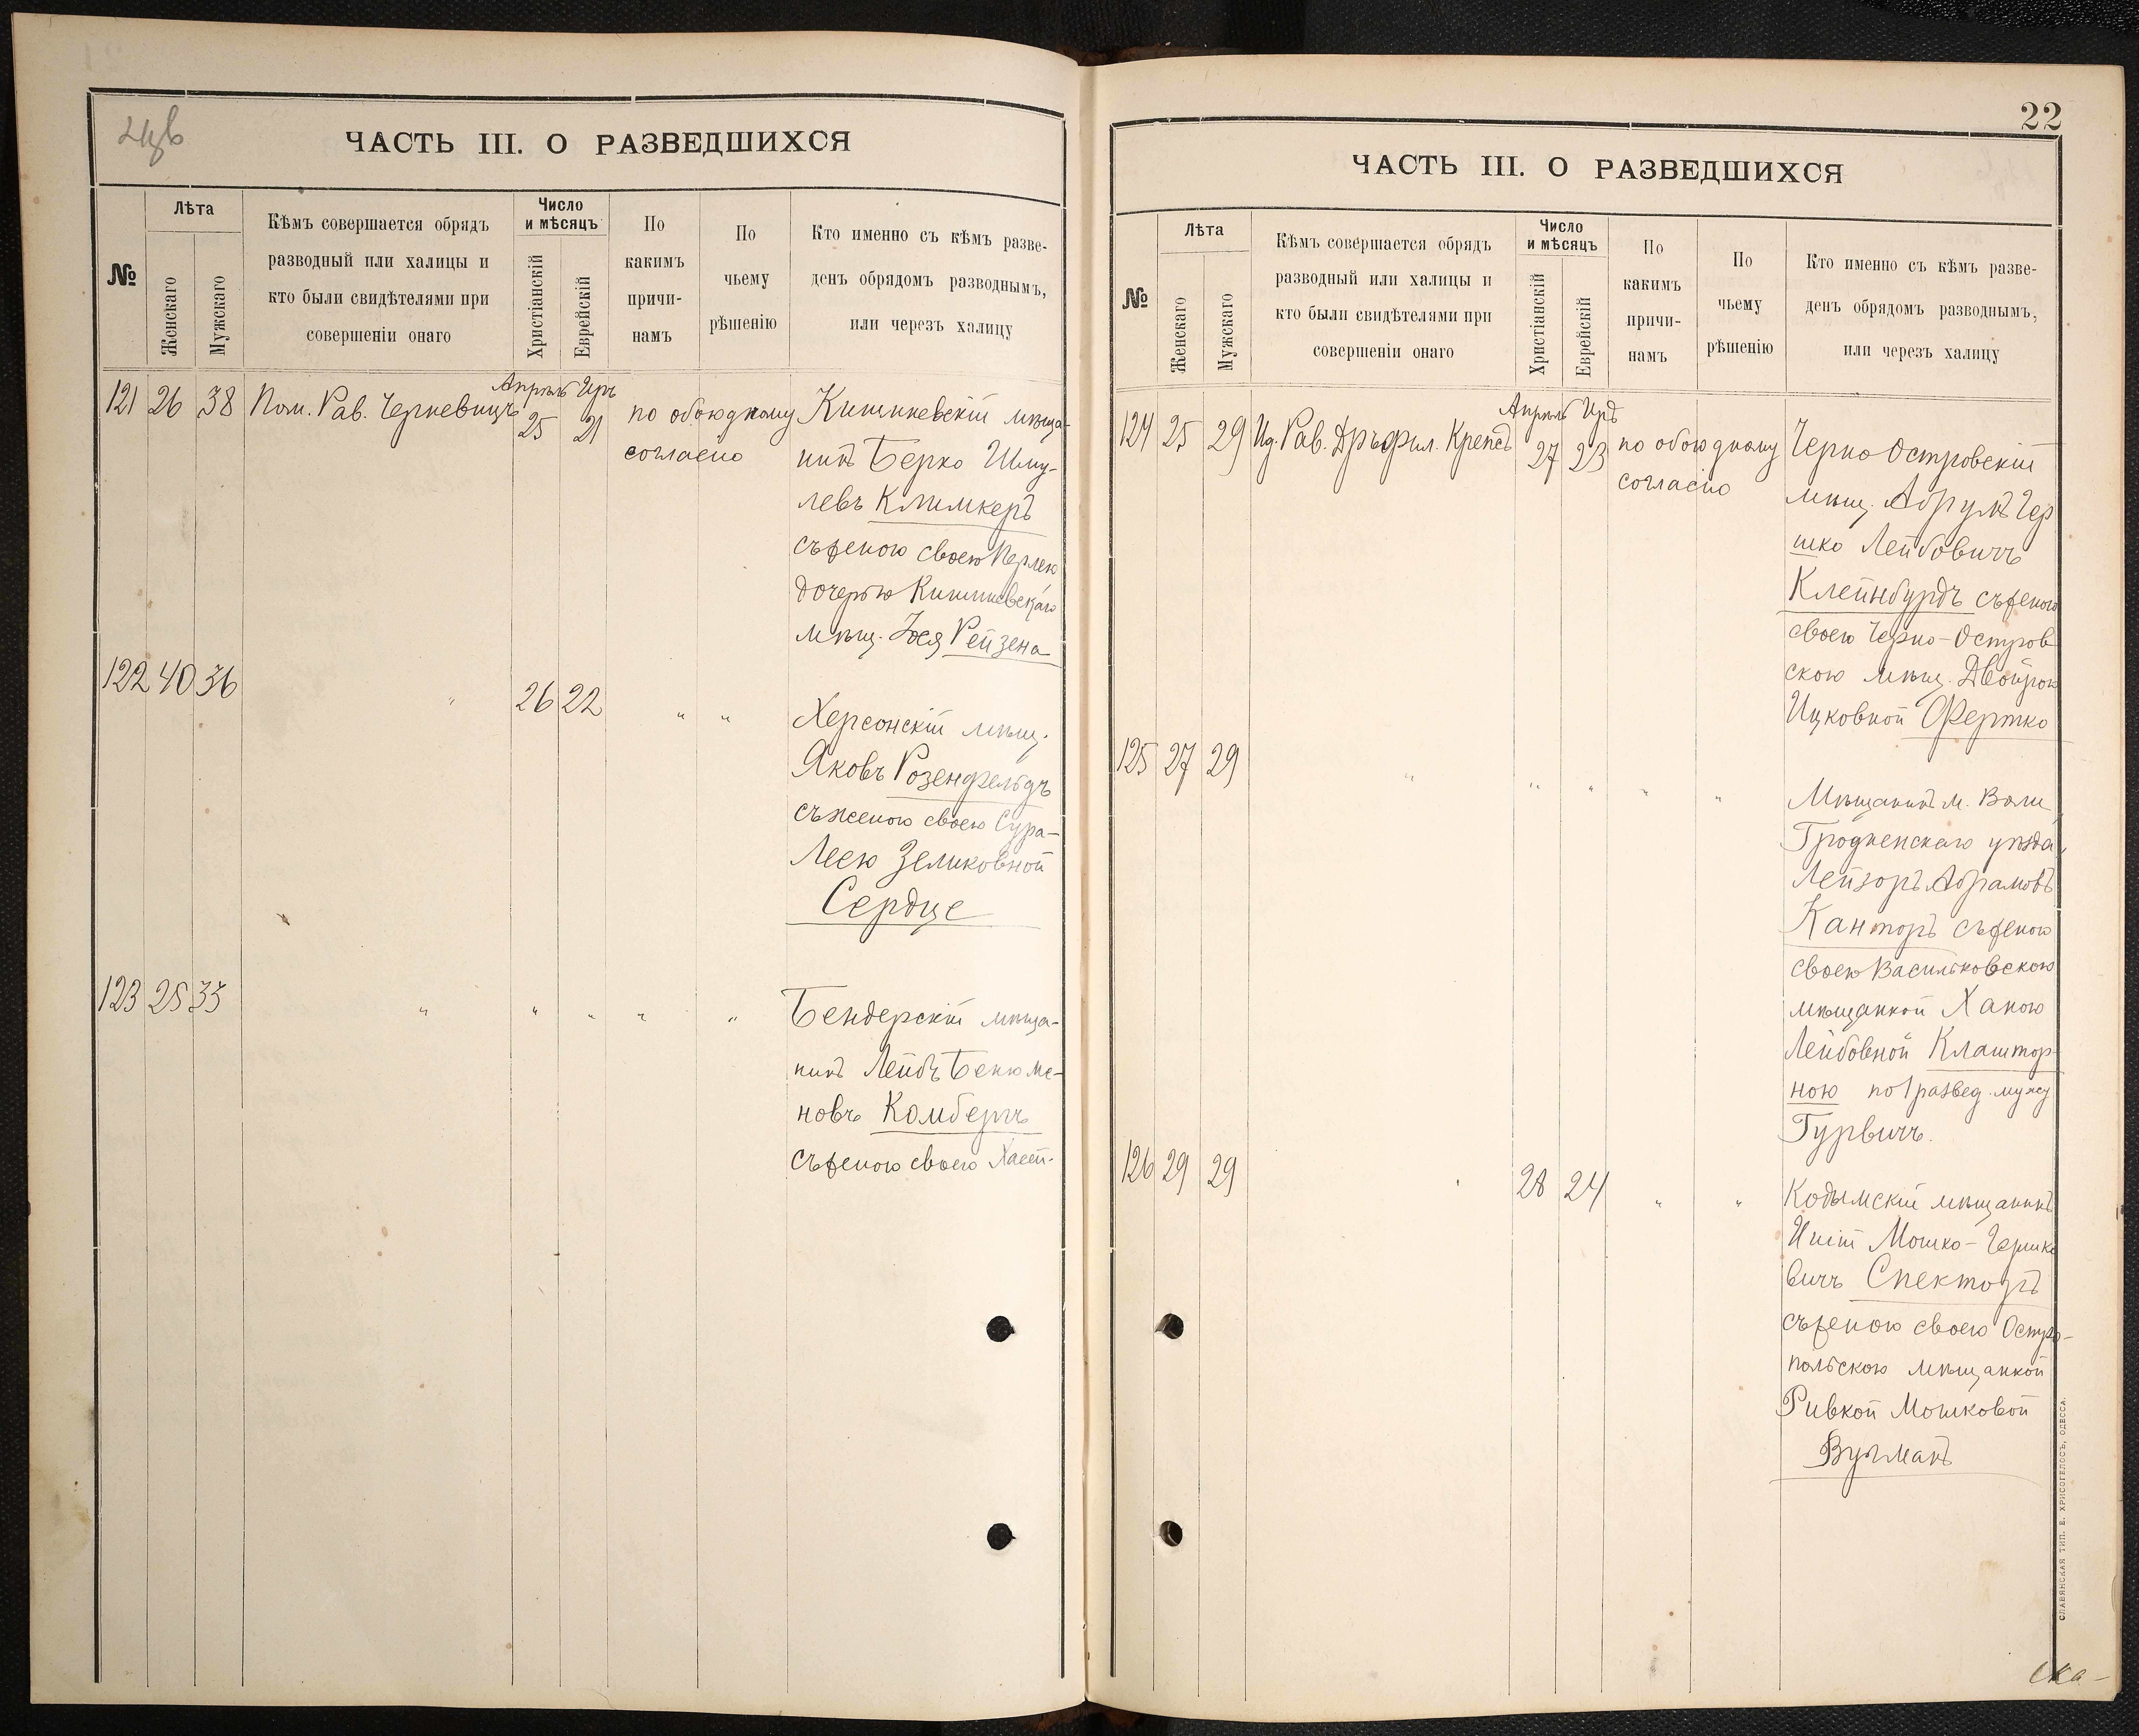 ЧАСТЬ III. О РАЗВЕДШИХСЯ
№
Лѣта
Женскаго
Мужскаго
Кѣмъ совершается обрядъ
разводный или халицы и
кто были свидѣтелями при
совершеніи онаго
Число
и мѣсяцъ
Христіанскій
Еврейскій
По
какимъ
причи-
намъ
По
чьему
рѣшенію
Кто именно съ кѣмъ разве-
денъ обрядомъ разводнымъ,
или черезъ халицу
121 26 38 Пом. Рав. Черневицъ Апрѣль 25 Иръ 21 по обоюдному
согласію
Кишиневскій мѣща-
нинъ Берко Шму-
левъ Климкеръ
съ женою своею Перлею
дочерью Кишиневскаго
мѣщ. Рейзена
122 40 36 " 26 22 " "
Херсонскій мѣщ.
Яковъ Розенфельдъ
съ женою своею Сура-
Леею Зельковной
Сердце
123 25 33 " " " " "
Бендерскій мѣща-
нинъ Лейбъ Беню ме-
новъ Комбергъ
съ женою своею
22
ЧАСТЬ III. О РАЗВЕДШИХСЯ
№
Лѣта
Женскаго
Мужскаго
Кѣмъ совершается обрядъ
разводный или халицы и
кто были свидѣтелями при
совершеніи онаго
Число
и мѣсяцъ
Христіанскій
Еврейскій
По
какимъ
причи-
намъ
По
чьему
рѣшенію
Кто именно съ кѣмъ разве-
денъ обрядомъ разводнымъ,
или черезъ халицу
124 25 29 Ид. Рав. Дръ фил. Крепсъ Апрѣль 27 Иръ 23 по обоюдному
согласію
Черно Островскій
мѣщ. Абрумъ Гер
шко Лейбовичъ
Клейнбурдъ съ женою
своею Черно-Остров
скою мѣщ. Двойрою
Ицковной Фертко
125 27 29 " " " " "
Мѣщанинъ м. Волп
Гродненскаго уѣзда
Лейзоръ Абрамовъ
Канторъ съ женою
своею Васильковскою
мѣщанкой Ханою
Лейбовной Клаштор-
ною по развед. мужу
Гурвичъ.
126 29 29 " 28 24 " "
Кодымскій мѣщанинъ
Мошко-Гершко
вичъ Спекторъ
съ женою своею Остро-
польскою мѣщанкой
Ривкой Мошковой
Вугманъ
СЛАВЯНСКАЯ ТИП. Е. ХРИСОГЕЛОСЪ, ОДЕССА.